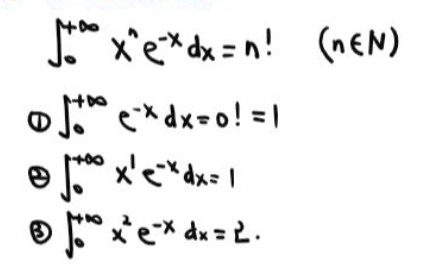 ∫₀^{+∞} xⁿe^{-x}dx = n! (n∈N)
① ∫₀^{+∞} e^{-x}dx = 0! = 1
② ∫₀^{+∞} x¹e^{-x}dx = 1
③ ∫₀^{+∞} x²e^{-x}dx = 2.